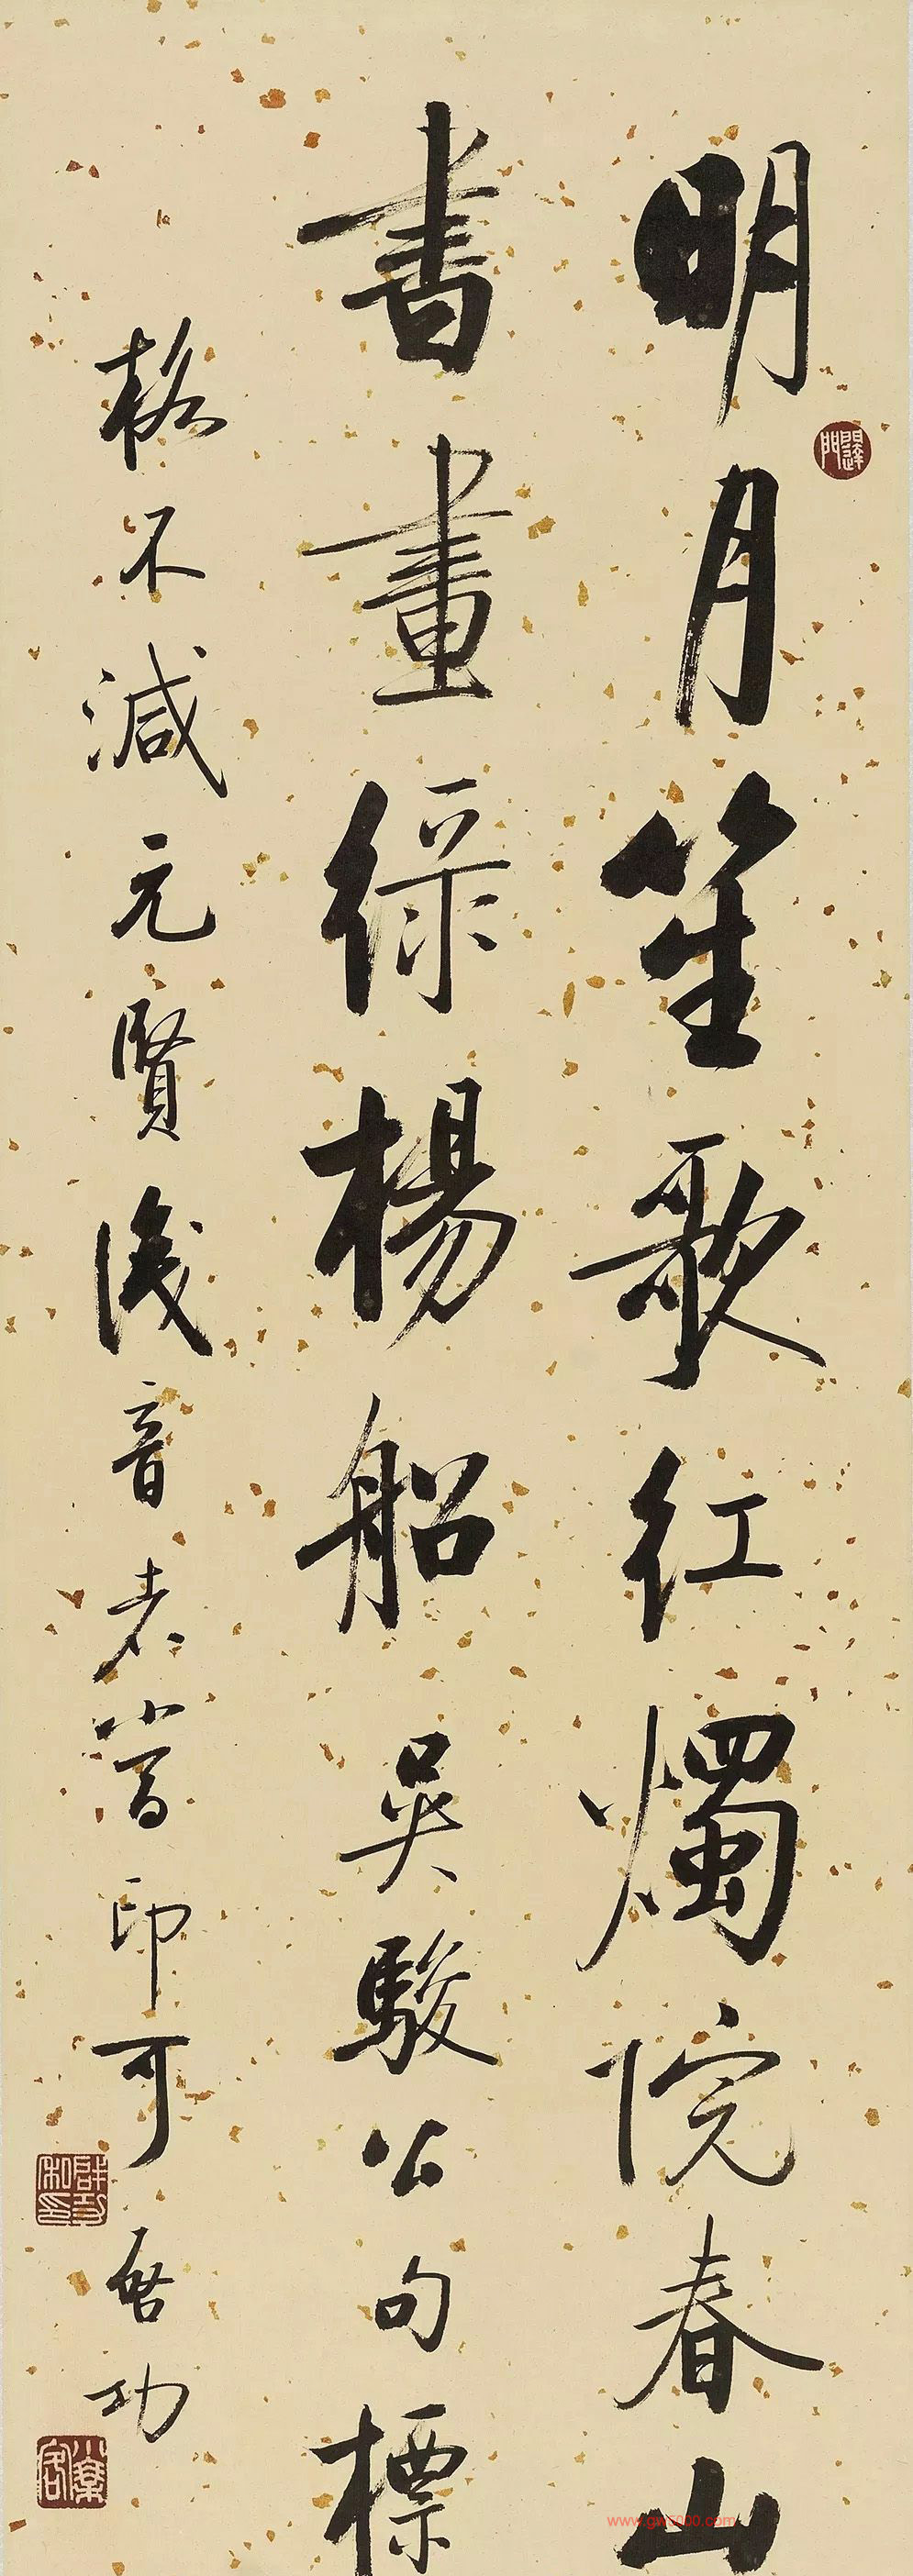 明月笙歌红燭院春山
書畫緑楊船吳駿公句標
格不減元賢後音者當印可
啓功
www.gw5000.com